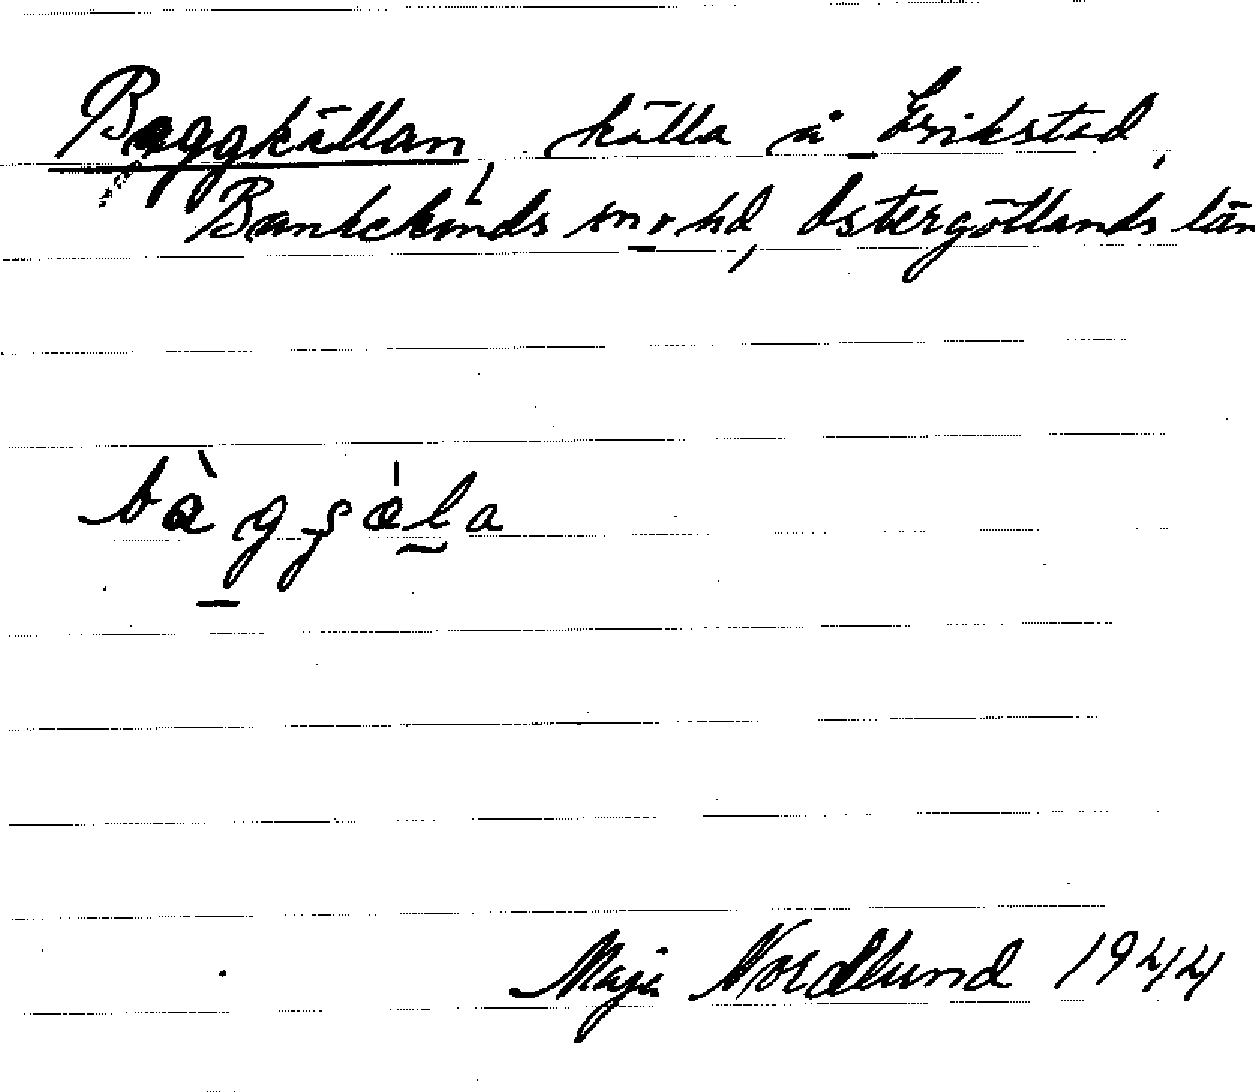 Baggkällan, källa å Erikstad,
Bankekinds sn o hd, Östergötlands län
Maja Nordlund 1944